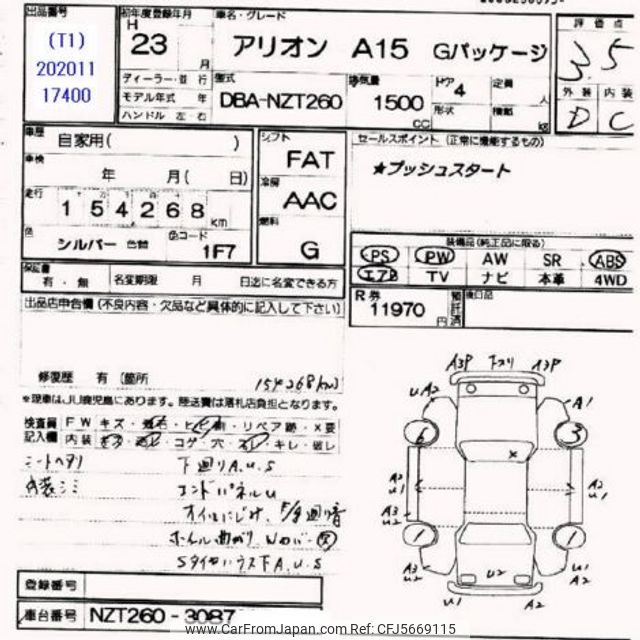 出品番号
(T1)
202011
17400
初年度登録年月
H
23 月
車名・グレード
アリオン A15 Gパッケージ
評価点
3.5
外装 内装
D C
ディーラー・並行
モデル年式 年
ハンドル 左 右
型式
DBA-NZT260
排気量
1500
CC
ドア
4
形状
定員
人
積載
kg
車歴
自家用( )
車検
年 月( 日)
走行
154268 km
色
シルバー 色替
色コード
1F7
シフト
FAT
冷房
AAC
燃料
G
セールスポイント (正常に機能するもの)
★プッシュスタート
装備品(純正品に限る)
PS PW AW SR ABS
エアB TV ナビ 本革 4WD
保証書
有・無
名変期限 月 日迄に名変できる方
R券
11970
円
預託済
後日品
出品店申告欄 (不良内容・欠品など具体的に記入して下さい)
修復歴 有 (箇所
154268km)
※現車はJU鹿児島にあります。陸送費は落札店負担となります。
検査員
記入欄
FW キズ・飛石・ヒビ・リペア跡・×要
内装 コゲ・穴・スレ・キレ・破レ
シートヘタリ
内装シミ
下廻りA.U.S
エンドパネルU
オイルにじみ
ホイール曲がり
SタイヤハウスF A.U.S
A3P 下スリ A3P
UA2
A1
6
3
A2
U1
A3
U2
A2
U1
1
1
A3
U2
U2
U1
A2
U1
A2
登録番号
車台番号
NZT260-3087
www.CarFromJapan.com Ref: CFJ5669115